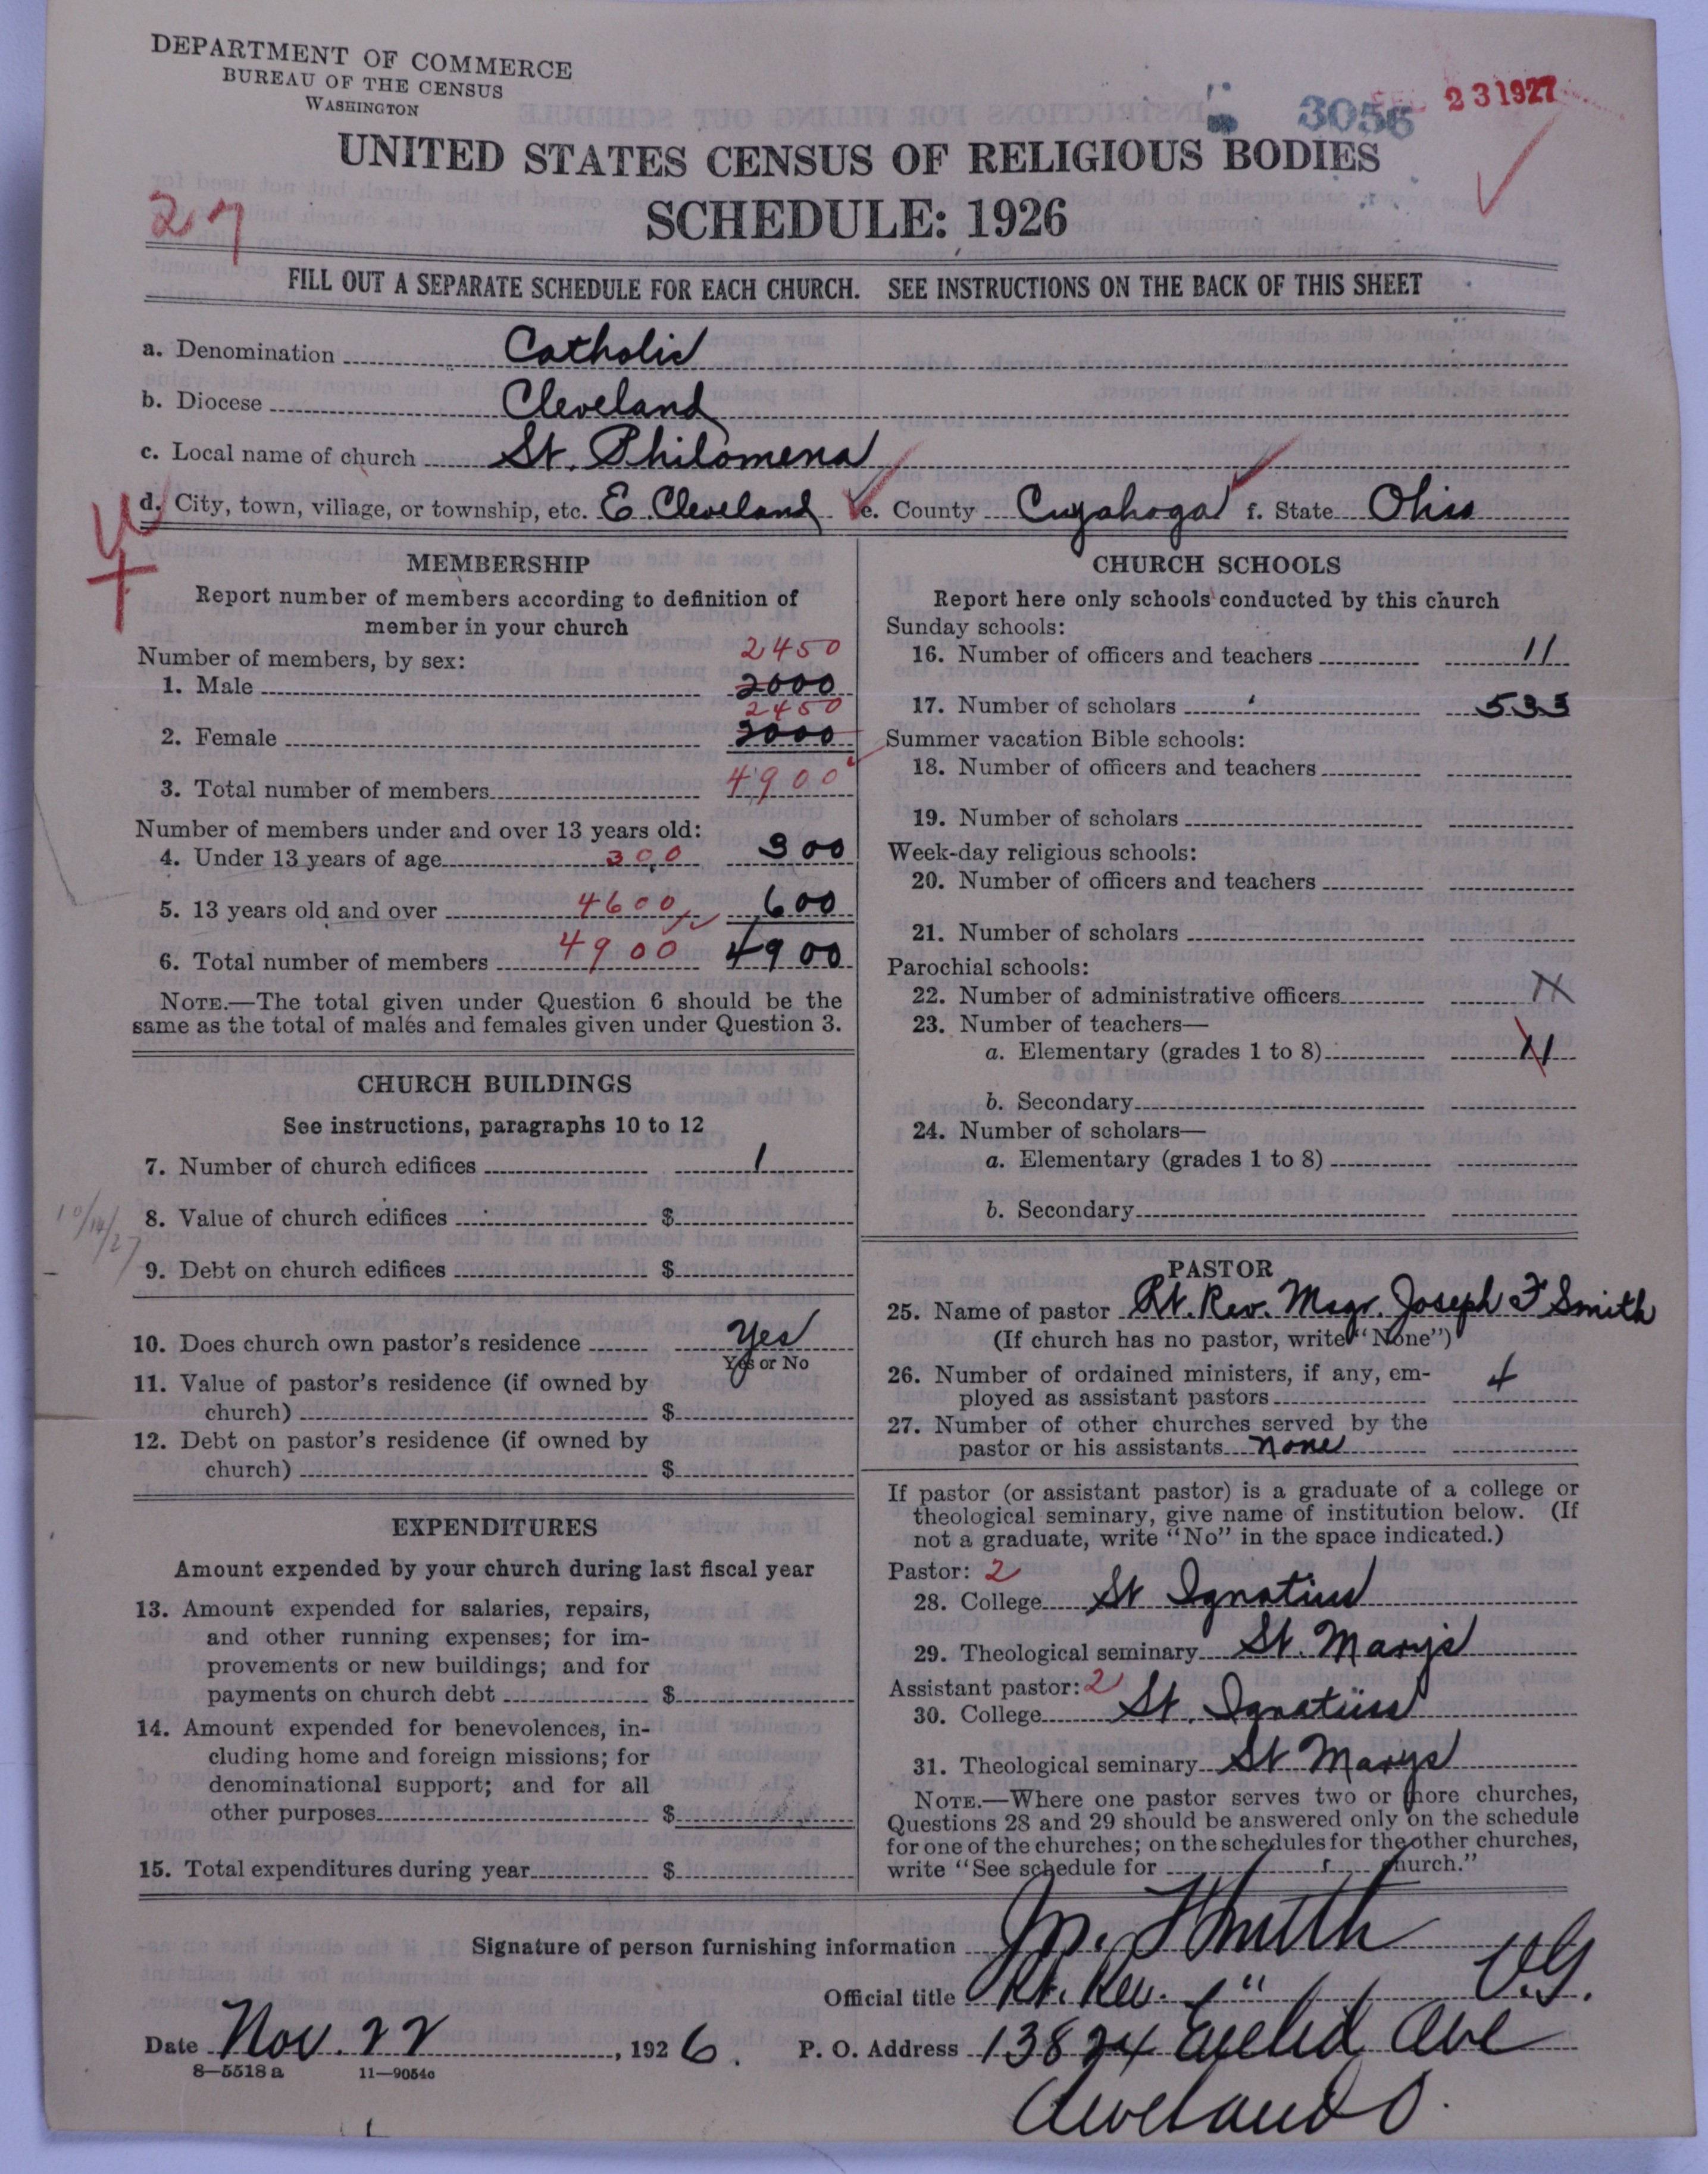 DEPARTMENT OF COMMERCE
BUREAU OF THE CENSUS
WASHINGTON
3056
23 1927
UNITED STATES CENSUS OF RELIGIOUS BODIES
27
SCHEDULE: 1926
FILL OUT A SEPARATE SCHEDULE FOR EACH CHURCH. SEE INSTRUCTIONS ON THE BACK OF THIS SHEET
a. Denomination Catholic
b. Diocese Cleveland
c. Local name of church St. Philomena
d. City, town, village, or township, etc. E. Cleveland e. County Cuyahoga f. State Ohio
MEMBERSHIP
Report number of members according to definition of
member in your church
Number of members, by sex:
2450
1. Male 2000
2450
2. Female 3000
3. Total number of members 4900
Number of members under and over 13 years old:
4. Under 13 years of age 300 300
5. 13 years old and over 4600 600
6. Total number of members 4900 4900
NOTE.—The total given under Question 6 should be the
same as the total of males and females given under Question 3.
CHURCH BUILDINGS
See instructions, paragraphs 10 to 12
7. Number of church edifices 1
8. Value of church edifices $
10/14/27
9. Debt on church edifices $
10. Does church own pastor's residence Yes
Yes or No
11. Value of pastor's residence (if owned by
church) $
12. Debt on pastor's residence (if owned by
church) $
EXPENDITURES
Amount expended by your church during last fiscal year
13. Amount expended for salaries, repairs,
and other running expenses; for im-
provements or new buildings; and for
payments on church debt $
14. Amount expended for benevolences, in-
cluding home and foreign missions; for
denominational support; and for all
other purposes $
15. Total expenditures during year $
CHURCH SCHOOLS
Report here only schools conducted by this church
Sunday schools:
16. Number of officers and teachers 11
17. Number of scholars 533
Summer vacation Bible schools:
18. Number of officers and teachers
19. Number of scholars
Week-day religious schools:
20. Number of officers and teachers
21. Number of scholars
Parochial schools:
22. Number of administrative officers
23. Number of teachers—
a. Elementary (grades 1 to 8) 11
b. Secondary
24. Number of scholars—
a. Elementary (grades 1 to 8)
b. Secondary
PASTOR
25. Name of pastor Rt. Rev. Msgr. Joseph F Smith
(If church has no pastor, write "None")
26. Number of ordained ministers, if any, em-
ployed as assistant pastors 4
27. Number of other churches served by the
pastor or his assistants none
If pastor (or assistant pastor) is a graduate of a college or
theological seminary, give name of institution below. (If
not a graduate, write "No" in the space indicated.)
Pastor: 2
28. College St Ignatius
29. Theological seminary St. Mary's
Assistant pastor: 2
30. College St. Ignatius
31. Theological seminary St Marys
NOTE.—Where one pastor serves two or more churches,
Questions 28 and 29 should be answered only on the schedule
for one of the churches; on the schedules for the other churches,
write "See schedule for church."
Signature of person furnishing information Jos. F Smith
Official title Rt. Rev. " V.G.
Date Nov. 22, 1926. P. O. Address 13824 Euclid Ave
8—5518 a 11—9054c
Cleveland O.